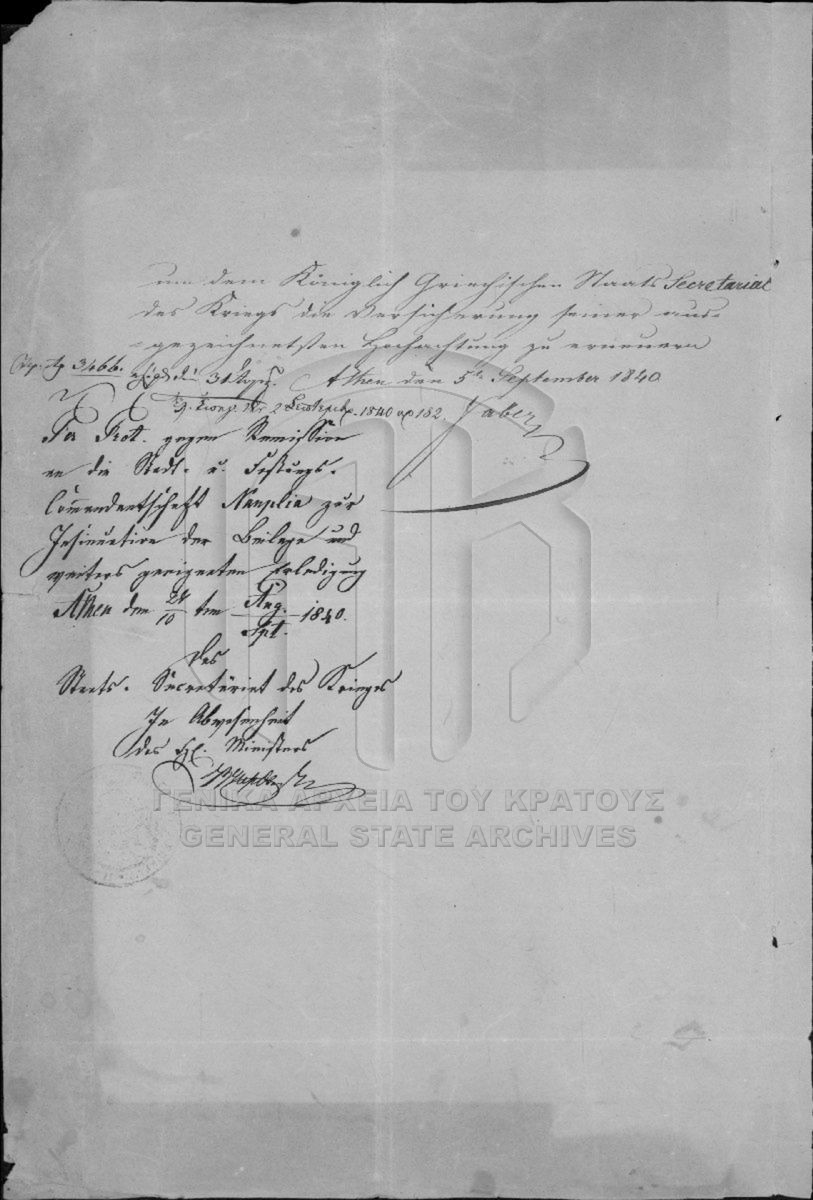 um dem Königlich Griechischen Staats Secretariat
des Kriegs die Versicherung seiner aus-
gezeichnetsten Hochachtung zu erneuern
Athen den 5ten September 1840.
Faber
Πρ. Ἀρ. 3466.
31 Αὐγ.
2 Σεπτεμβ. 1840 αρ 182.
Per Prot. gegen Remission
an die Stadt- u. Festungs-
Commandantschaft Nauplia zur
Insinuation der Beilage und
weiters geeigneten Erledigung
Athen den 29/10 ten Aug./Spt. 1840.
Das
Staats-Secretariat des Krieges
In Abwesenheit
des H. Ministers
ΓΕΝΙΚΑ ΑΡΧΕΙΑ ΤΟΥ ΚΡΑΤΟΥΣ
GENERAL STATE ARCHIVES